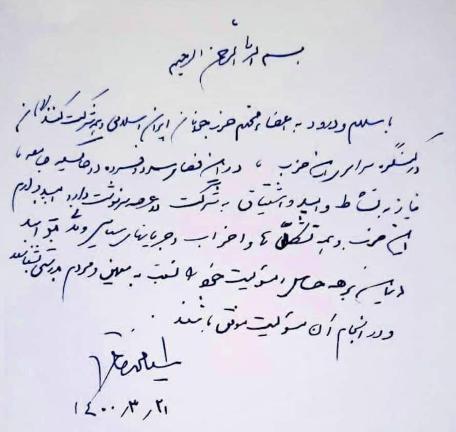 بسم الله الرحمن الرحیم
با سلام و درود به اعضاء محترم حزب جوانان ایران اسلامی و همه شرکت کنندگان
در کنگره سراسری این حزب، در این فضای سرد و افسرده در حالیکه جامعه ما
نیاز به نشاط و امید و اشتیاق به شرکت در عرصه سرنوشت دارد امیدوارم
این حزب و همه تشکل ها و احزاب و جریانهای سیاسی و مدنی بتوانند
در این برهه حساس مسئولیت خود را نسبت به میهن و مردم بدرستی بشناسند
و در انجام آن مسئولیت موفق باشند
سید محمد خاتمی
۱۴۰۰/۳/۲۱